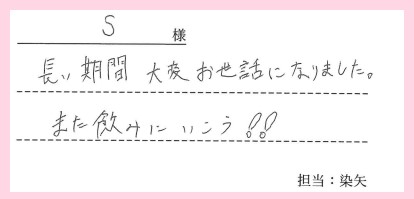 S 様
長い期間 大変お世話になりました。
また飲みにいこう!!
担当：染矢